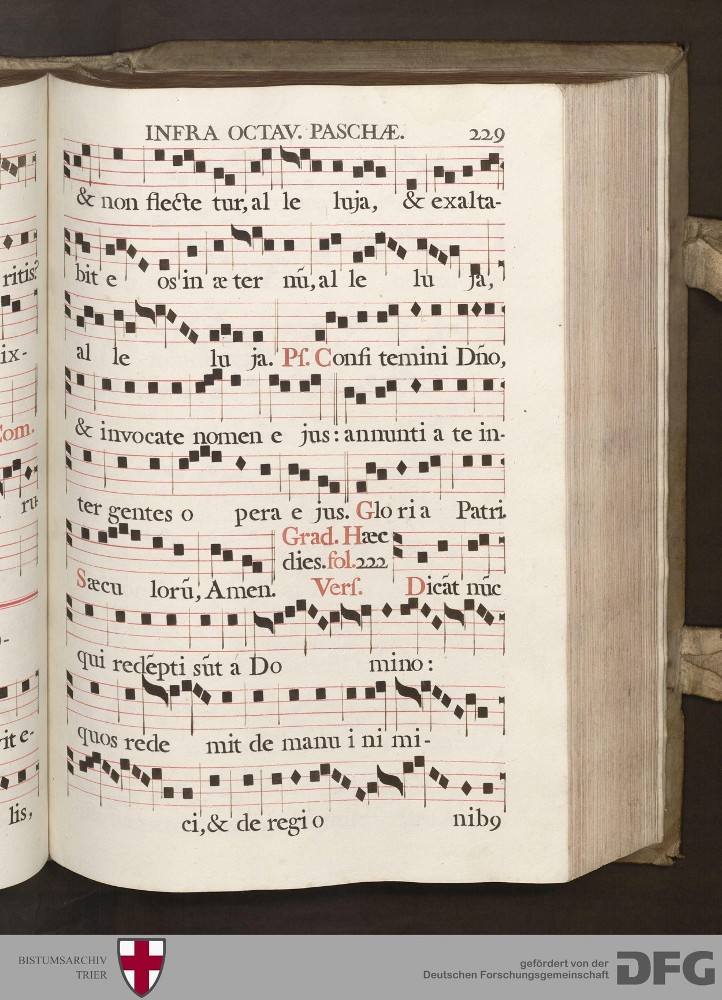 INFRA OCTAV. PASCHÆ. 229
& non flecte tur, al le luja, & exalta-
bit e os in æ ter nū, al le lu ja,
al le lu ja. Pſ. Confi temini Dño,
& invocate nomen e jus: annunti a te in-
ter gentes o pera e jus. Glo ri a Patri.
Grad. Hæc
dies. fol. 222
Sæcu lorū, Amen. Verſ. Dicāt nūc
qui redēpti sūt a Do mino:
quos rede mit de manu i ni mi-
ci, & de regi o nib9
ritis?
ix-
Com.
ru-
rit e-
lis,
BISTUMSARCHIV
TRIER
gefördert von der
Deutschen Forschungsgemeinschaft
DFG